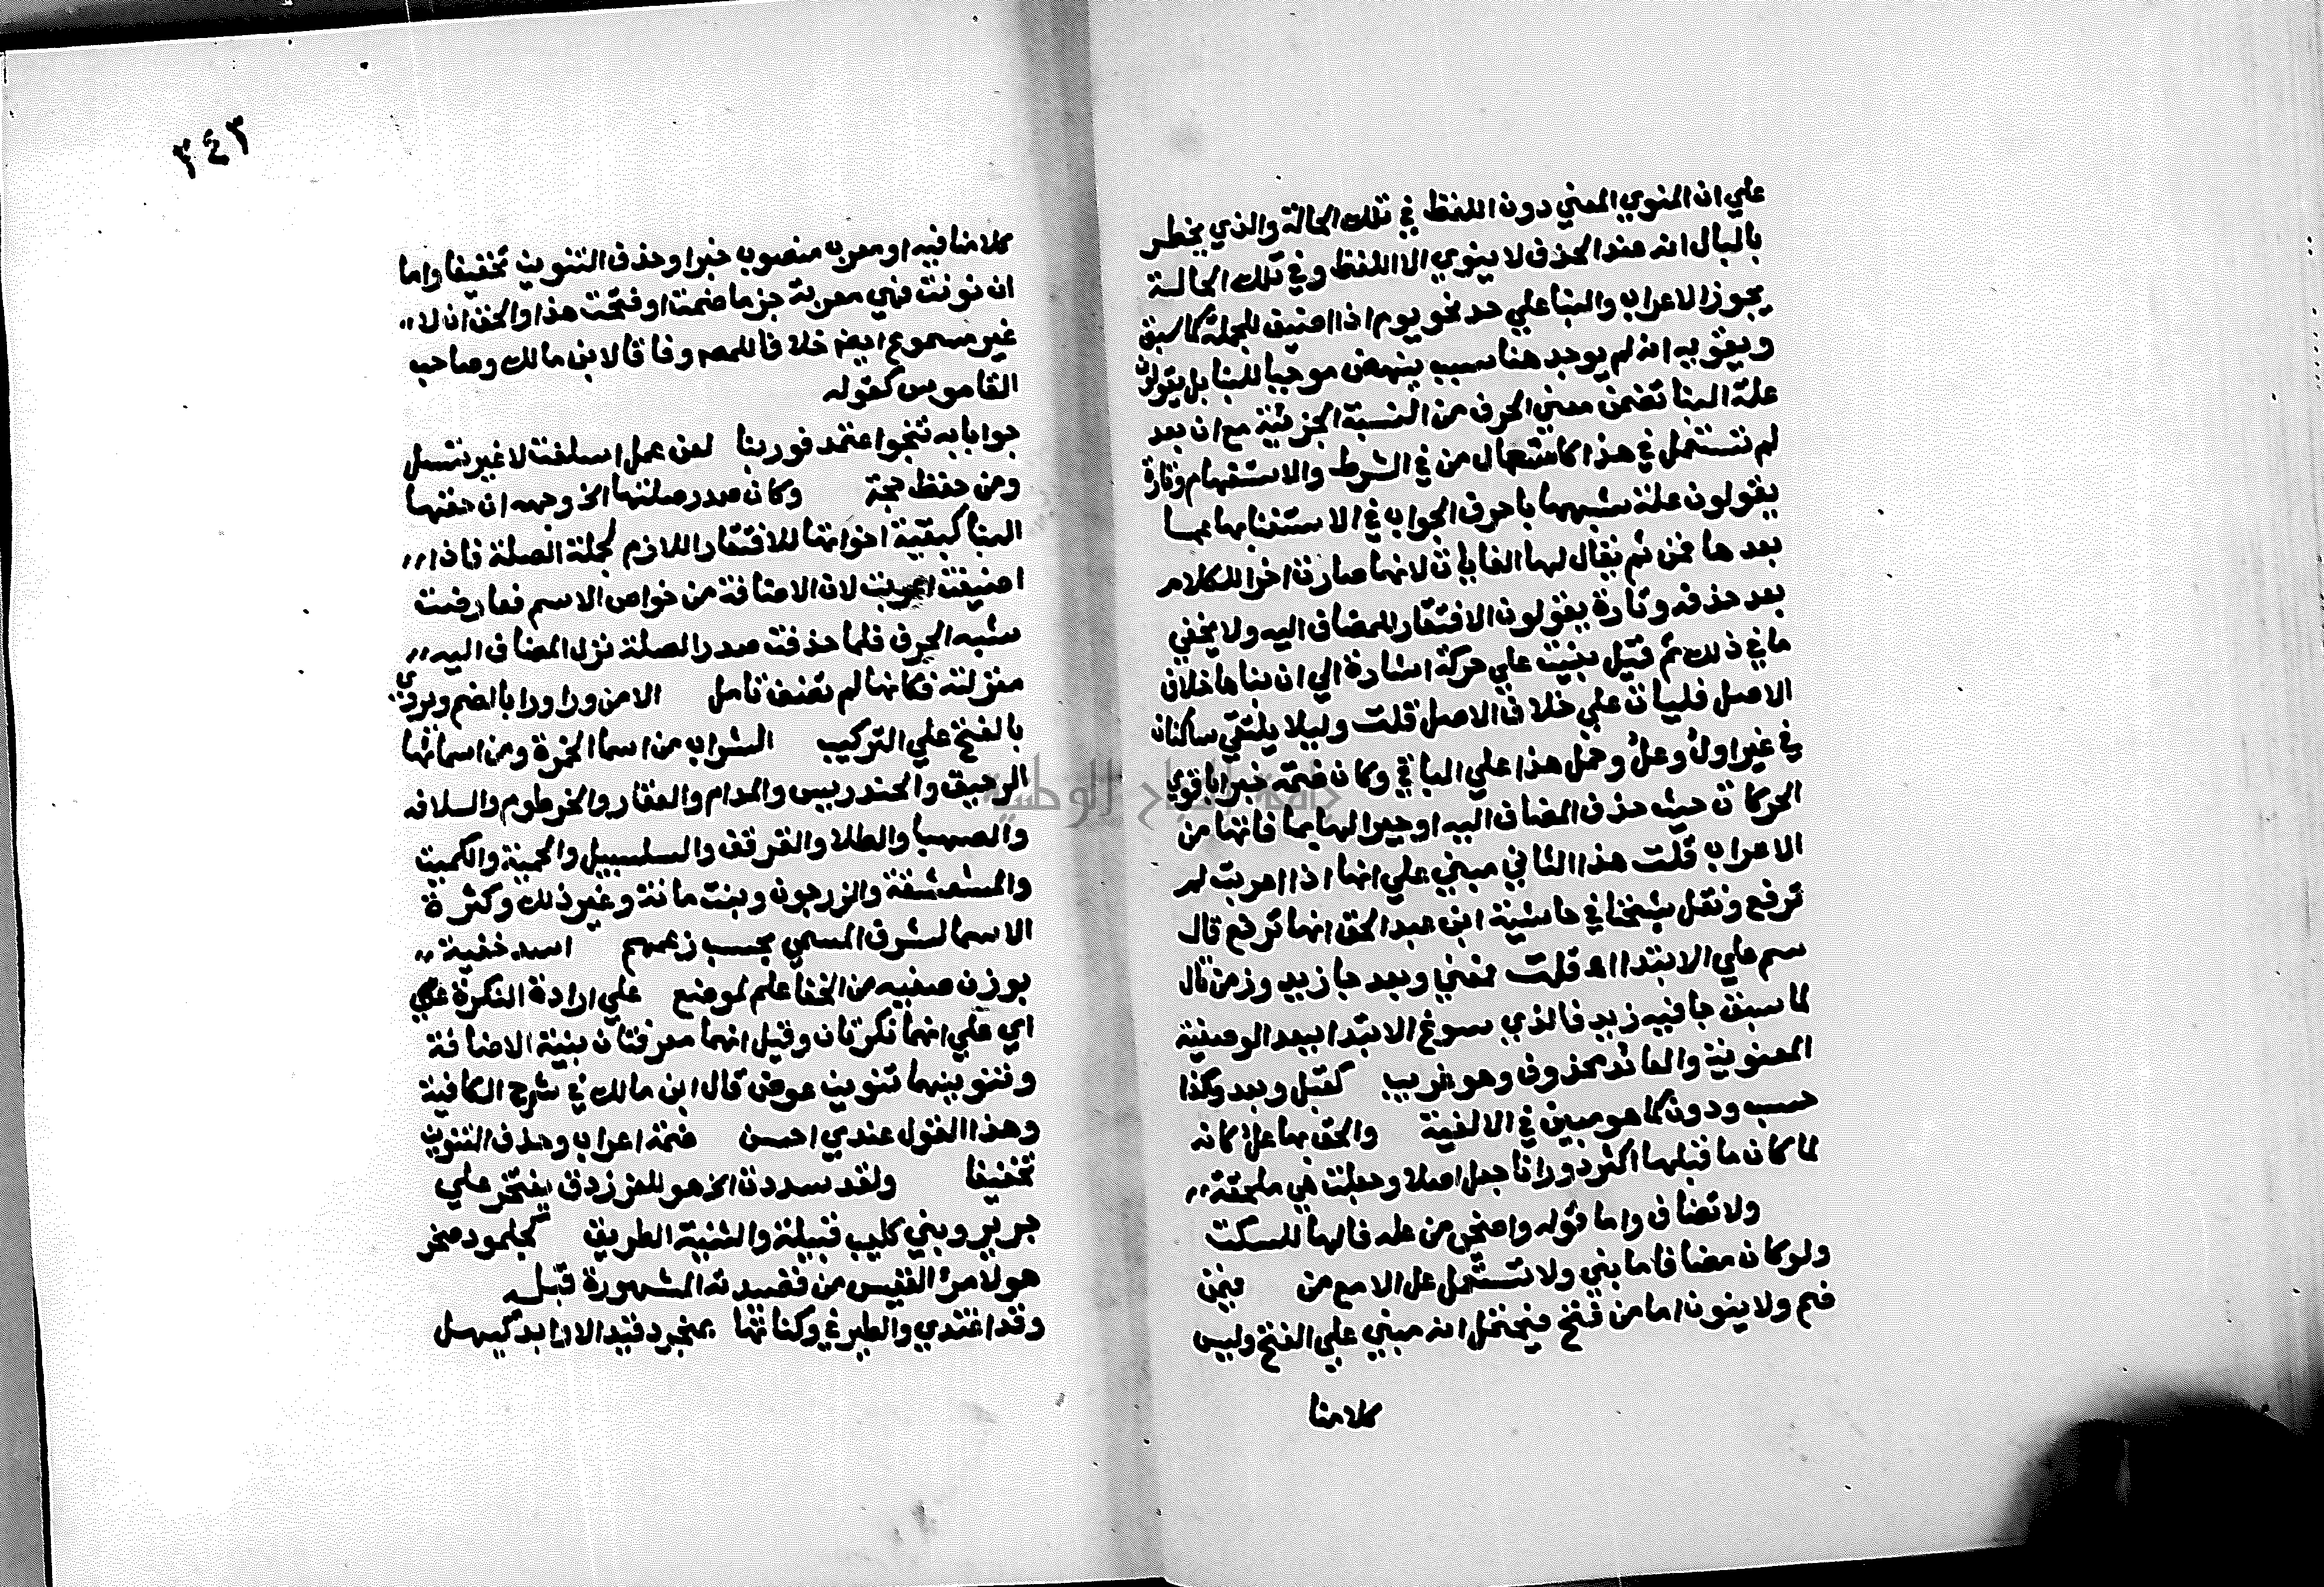 علي ان المنوي المعني دون اللفظ في تلك الحالة والذي يخطر
بالبال انه عند الحذف لا ينوي الا اللفظ وفي تلك الحالة
يجوز الاعراب والبنا علي حد نحو يوم اذا اضيف للجملة كما سبق
ويقويه انه لم يوجد هنا سبب ينهض موجبا للبنا بل يقولون
علة البنا تضمن معني الحرف من النسبة الجزئية مع ان بعد
لم تستعمل في هذا كاستعمال من في الشرط والاستفهام وتارة
يقولون علة شبهها باحرف الجواب في الاستغنا بها عما
بعدها فمن ثم يقال لها الغايات لانها صارت اخر الكلام
بعد حذفه وتارة يقولون الافتقار للمضاف اليه ولا يخفي
ما في ذلك ثم قيل بنيت علي حركة اشارة الي ان بناها خلاف
الاصل فليات علي خلاف الاصل قلت وليلا يلتقي ساكنان
في غير اول وعل وحمل هذا علي الباقي وكان ضمه جبرا باقوي
الحركات حيث حذف المضاف اليه او جبرا لها بما فاتها من
الاعراب قلت هذا الثاني مبني علي انها اذا اعربت لم
ترفع ونقل شيخنا في حاشية ابن عبد الحق انها ترفع قال
سم علي الابتدا اه قلت فمعني وبعد جا زيد وزمن تال
لما سبق جا فيه زيد فالذي سوغ الابتدا ببعد الوصفية
المعنوية والعائد محذوف وهو غريب كقبل وبعد وكذا
حسب ودون كما هو مبين في الالفية والحق بها عل كانه
لما كان ما قبلها اكثر دورانا جعل اصلا وجعلت هي ملحقة
ولا تضاف واما قوله واضحي من عله فالها للسكت
ولو كان مضافا ما بني ولا تستعمل عل الا مع من فمن
ضم ولا ينون اما من فتح فيحتمل انه مبني علي الفتح وليس
كلامنا
٣٤٣
كلامنا فيه او معرب منصوب خبرا وحذف التنوين تخفيفا واما
ان نونت فهي معربة جزما ضمت او فتحت هذا والحق ان لا
غير مسموع ايضم خلافا للمصم وفاقا لابن مالك وصاحب
القاموس كقوله
جوابا به تنجو اعتمد فوربنا لعن عمل اسلفت لا غير تسئل
ومن حفظ حجة وكان صدر صلتها الخ وجهه ان حقها
البنا كبقية اخواتها للافتقار اللازم لجملة الصلة فاذا
اضيفت اعربت لان الاضافة من خواص الاسم فعارضت
شبه الحرف فلما حذفت صدر الصلة نزل المضاف اليه
منزلته فكانها لم تضف تامل الا من ورا ورا بالضم ويروي
بالفتح علي التركيب الشراب من اسما الخمرة ومن اسمائها
الرحيق والخندريس والمدام والعقار والخرطوم والسلافه
والصهبا والطلا والقرقف والسلسبيل والحمية والكميت
والمشعشعة والزرجون وبنت حانة وغير ذلك وكثرة
الاسما لشرف المسمي بحسب زعمهم اسد خفية
بوزن صفيه من الخفا علم لموضع علي ارادة النكرة علي
اي علي انهما نكرتان وقيل انهما معرفتان بنية الاضافة
وتنوينهما تنوين عوض قال ابن مالك في شرح الكافية
وهذا القول عندي احسن ضمة اعراب وحذف التنوين
تخفيفا ولقد سددت الخ هو للفرزدق يفتخر علي
جرير وبني كليب قبيلة والثنية الطريق كجلمود صخر
هو لامرئ القيس من قصيدته المشهورة قبله
وقد اغتدي والطير في وكناتها بمنجرد قيد الاوابد كيهل